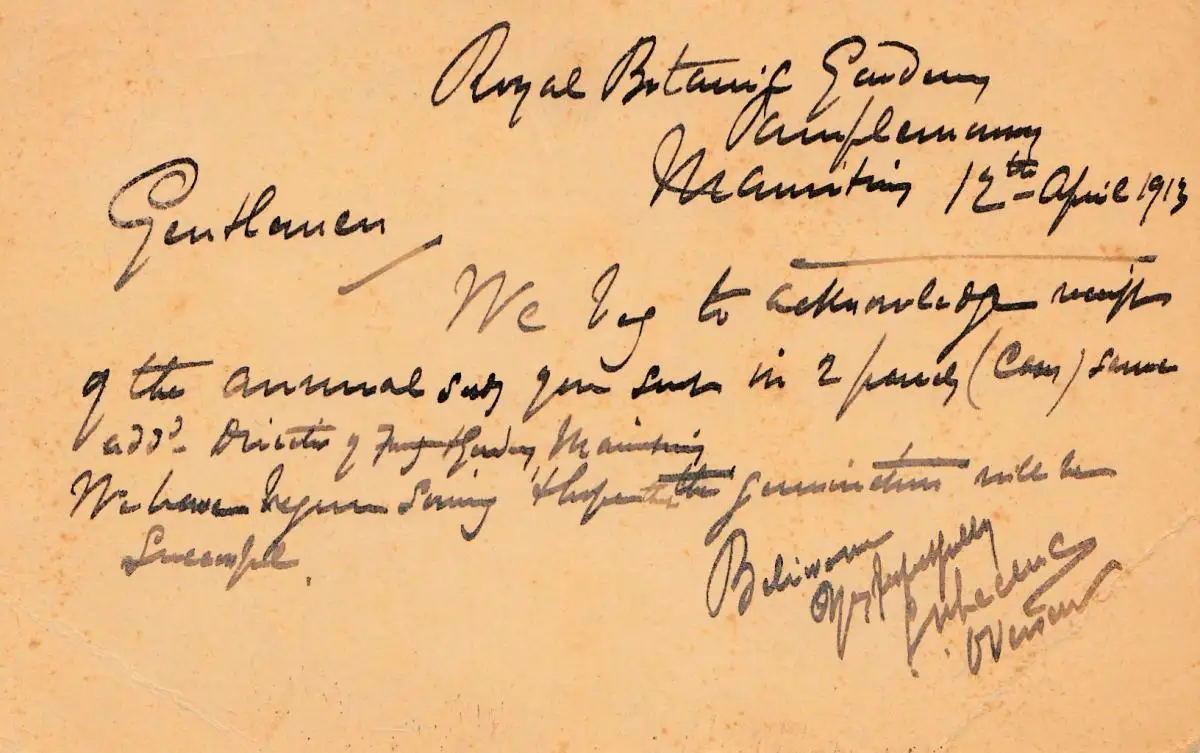 Royal Botanic Gardens
Pamplemousses
Mauritius 12th April 1913
Gentlemen
We beg to acknowledge receipt
of the annual seeds you sent in 2 parcels (Case) same
add'd Director of Gardens Mauritius
We have begun sowing & hope the germination will be
Successful.
Believe me
Yrs faithfully
Overseer